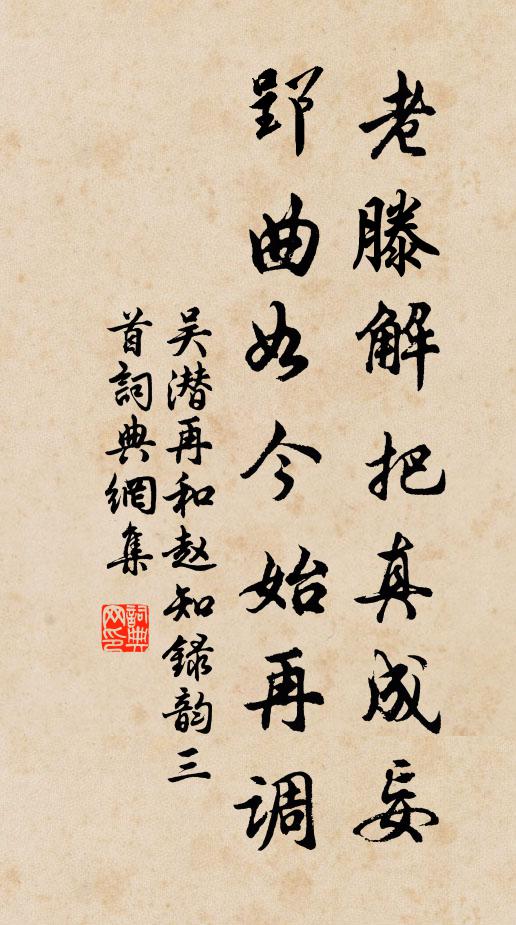 老滕解把真成妄
郢曲如今始再调
吴潜再和赵知録韵三
首詞典網集
詞典
网印